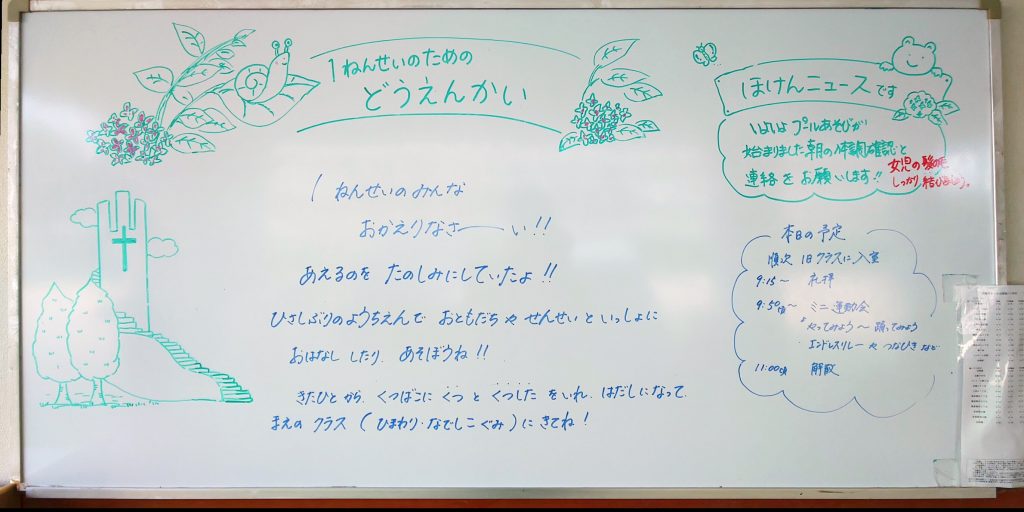 1ねんせいのための
どうえんかい
1ねんせいのみんな
おかえりなさーい!!
あえるのを たのしみにしていたよ!!
ひさしぶりのようちえんで おともだちや せんせいと いっしょに
おはなし したり、あそぼうね!!
きたひとから、くつばこに くつ と くつした をいれ、はだしになって、
まえの クラス (ひまわり・なでしこ ぐみ) に きてね!
ほけんニュースです
いよいよ プールあそびが
始まりました 朝の体調確認と
連絡を お願いします!!
女児の髪の毛
しっかり結びましょう。
本日の予定
順次 旧クラスに入室
9:15〜 礼拝
9:50頃〜 ミニ運動会
・やってみよう〜踊ってみよう
・エンドレスリレーや つなひき など
11:00頃 解散